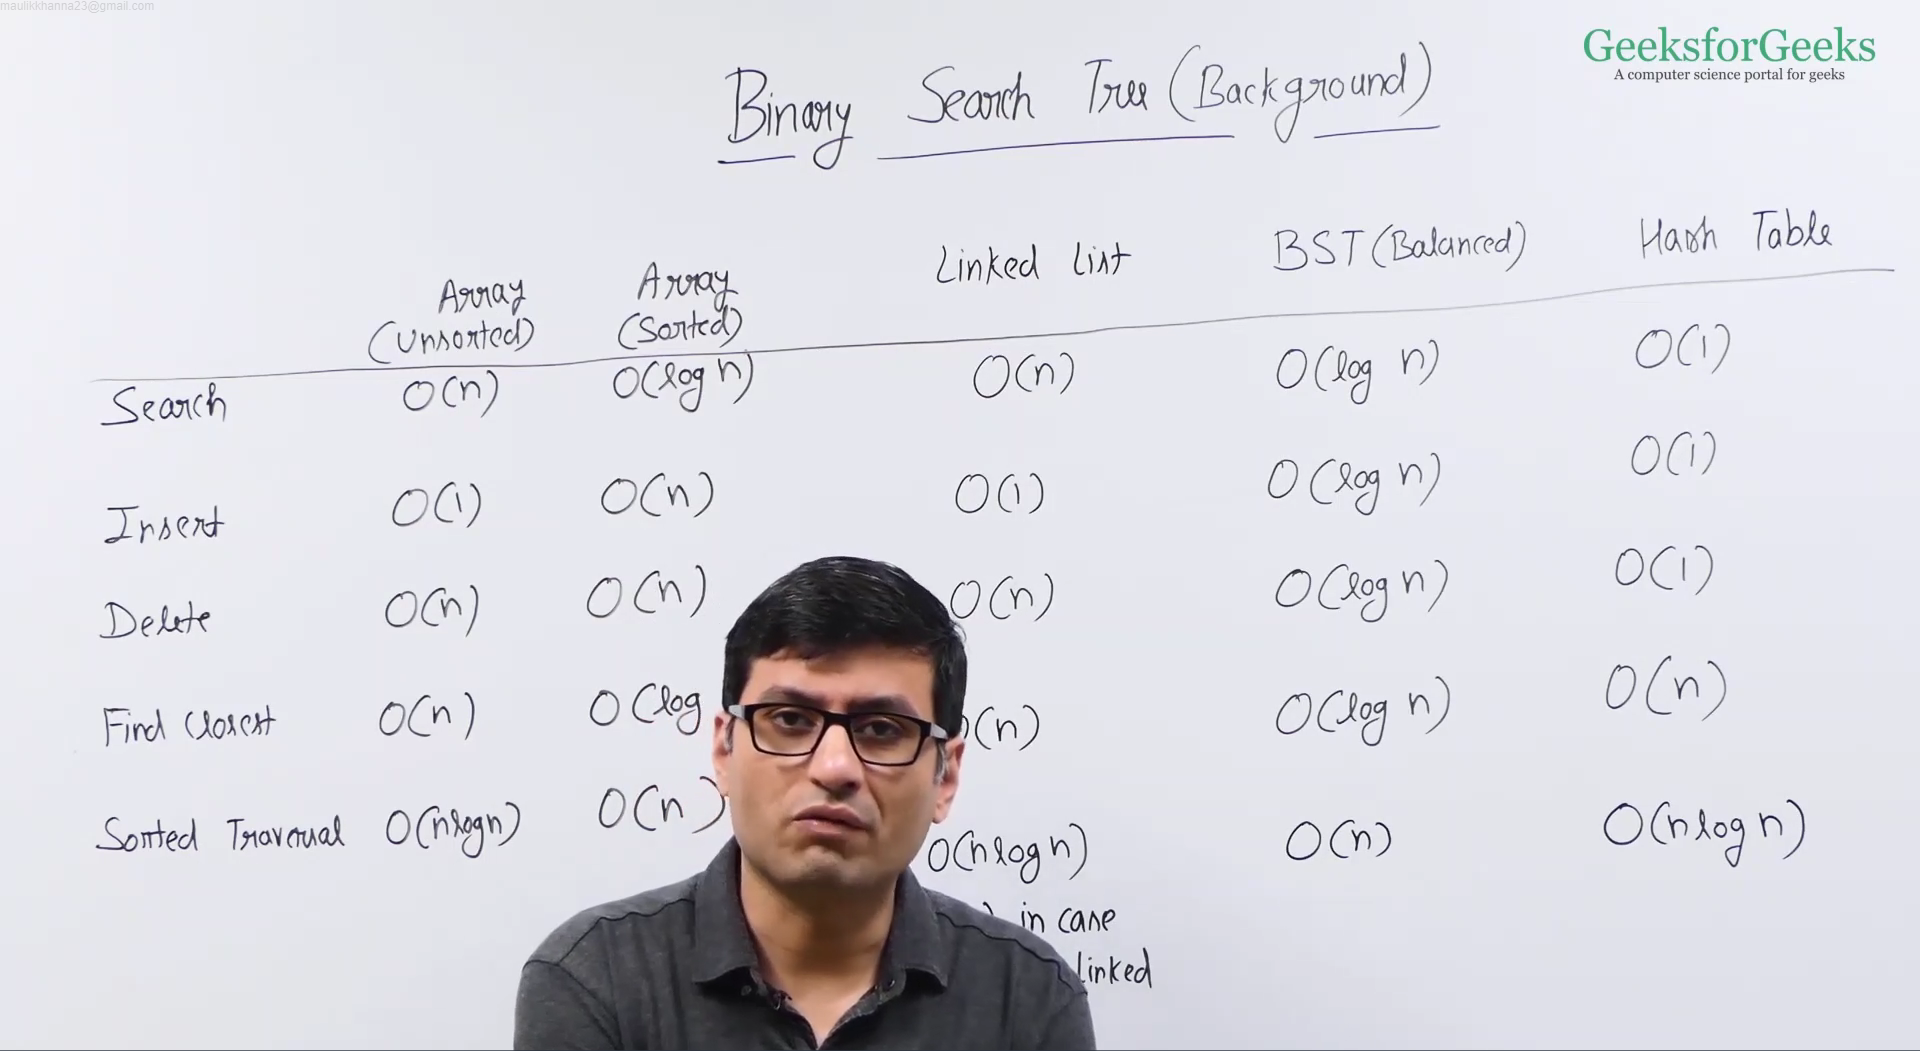 maulikkhanna23@gmail.com
GeeksforGeeks
A computer science portal for geeks
Binary Search Tree (Background)
Array (Unsorted) Array (Sorted) Linked List BST (Balanced) Hash Table
Search O(n) O(log n) O(n) O(log n) O(1)
Insert O(1) O(n) O(1) O(log n) O(1)
Delete O(n) O(n) O(n) O(log n) O(1)
Find Closest O(n) O(log (n) O(log n) O(n)
Sorted Traversal O(nlogn) O(n) O(nlogn) O(n) O(nlogn)
) in case
linked